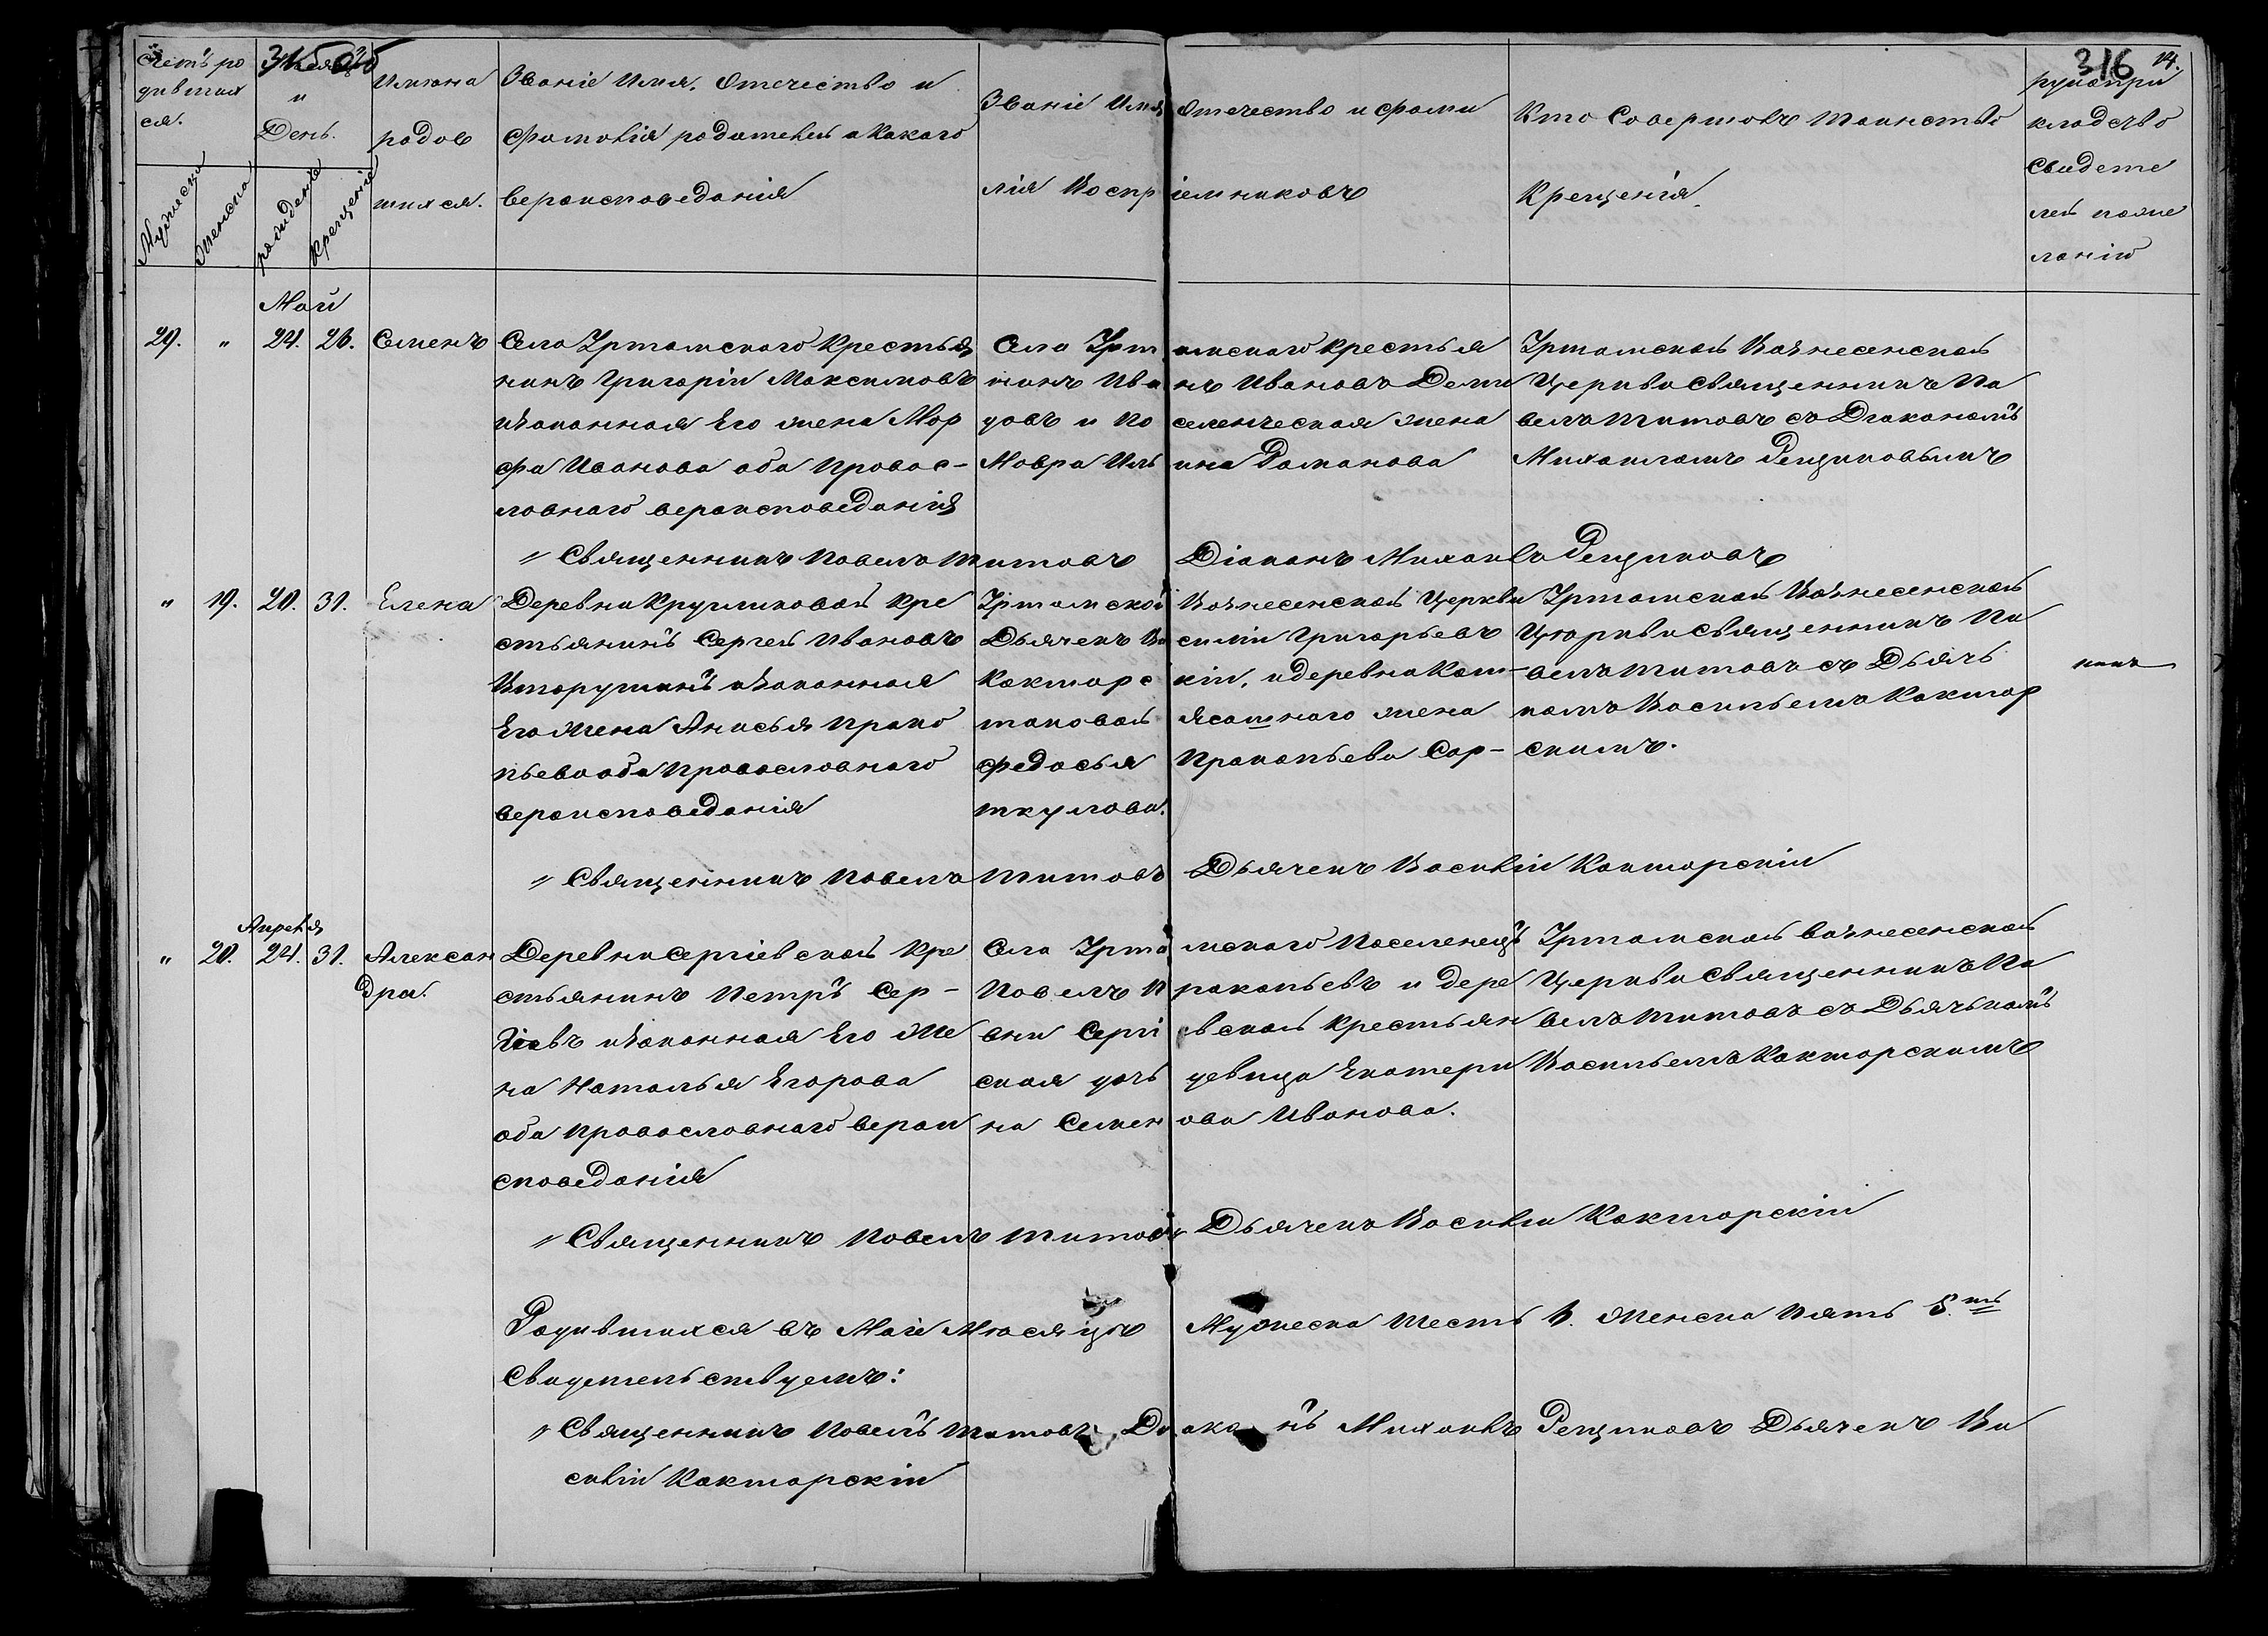 Счетъ ро
дивших
ся.
315 об
Месяцъ
и
День.
Мужеска
Женска
рождения
Крещения
Имяна
родов
шихся.
Званіе Имя, Отечество и
Фамилія родителей и какого
вероисповеданія
Званіе Имя, Отечество и фами
лія Воспріемниковъ
Кто Совершалъ Таинство
Крещенія.
316
рукопри
кладство
Свидете
лей поже
ланію
Май
29. " 24. 26. Семенъ
Села Уртамского Крестья
нинъ Григорій Максимовъ
и законная Его жена Мар
фа Иванова оба Правос-
лавнаго вероисповеданія
Села Уртамского крестья
нинъ Иванъ Ивановъ Деми
довъ и поселенческая жена
Мавра Ильина Романова
Уртамской Вознесенской
Церкви Священникъ Па
велъ Титовъ съ Диакономъ
Михаиломъ Рещиковымъ
" Священникъ Павелъ Титовъ Діаконъ Михаилъ Рещиковъ
" 19. 20. 31. Елена
Деревни Кругликовой Кре
стьянинъ Сергей Ивановъ
Вторушинъ и Законная
Его Жена Анисья Проко
пьева оба Православнаго
вероисповеданія
Уртамской Вознесенской Церкви
Дьячекъ Василій Григорьевъ
Какторскій, и деревни Каш-
таковой Ясашного жена
Федосья Прокопьева Сор-
ткулова.
Уртамской Вознесенской
Церкви Священникъ Па
велъ Титовъ съ Дьячь
комъ Васильемъ Какторр
скимъ.
" Священникъ Павелъ Титовъ Дьячекъ Василій Какторскій
Апреля
" 20. 24. 31. Алексан
дра.
Деревни Сергіевской Кре
стьянинъ Петръ Сер-
гіевъ и Законная Его Же
на Наталья Егорова
оба Православнаго верои
споведанія
Села Уртамского Поселенецъ
Павелъ Прокопьевъ и дере
вни Сергіевской Крестьян
ская дочь девица Екатери
на Семенова Иванова.
Уртамской Вознесенской
Церкви Священникъ Па
велъ Титовъ съ Дьячькомъ
Васильемъ Какторскимъ
" Священникъ Павелъ Титовъ Дьячекъ Василій Какторскій
Родившихся въ Маіе Месяце Мужеска Шесть 6. Женска Пять 5.ть
Свидетельствуемъ:
" Священникъ Павелъ Титовъ, Диаканъ Михаилъ Рещиковъ Дьячекъ Ва
силій Какторскій